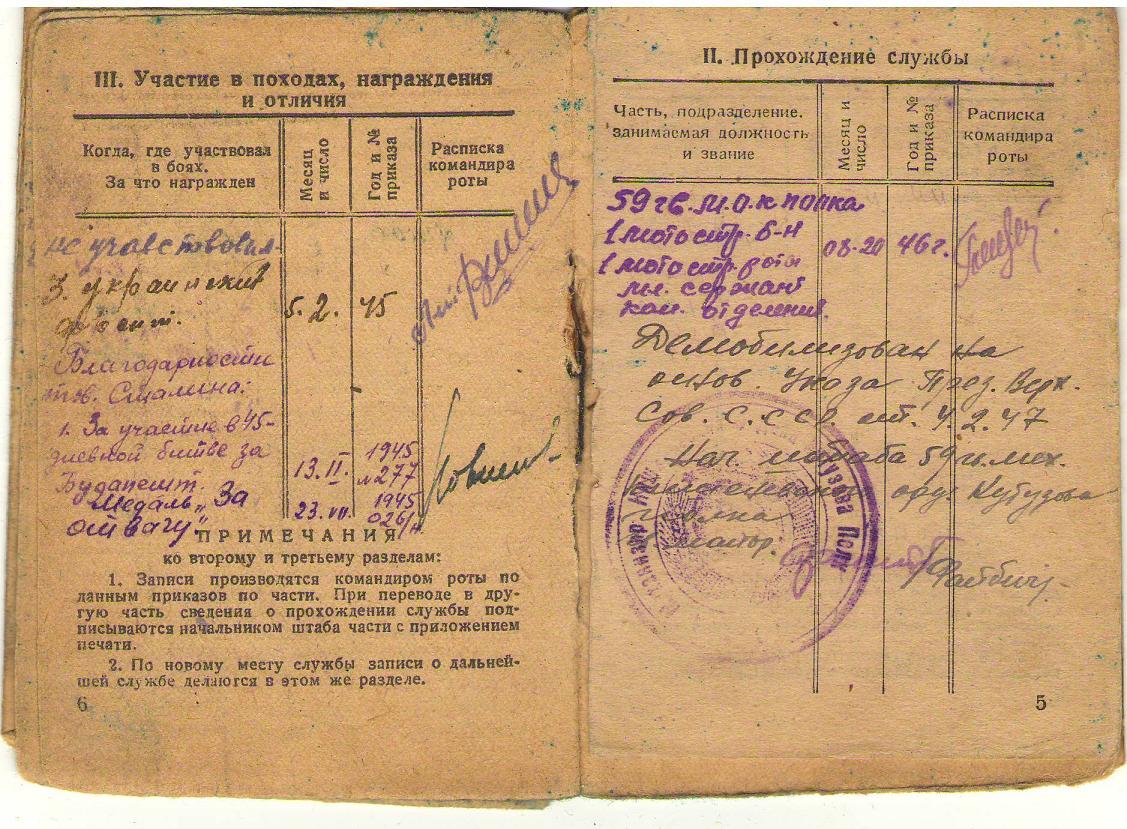 III. Участие в походах, награждения
и отличия
Когда, где участвовал
в боях.
За что награжден
Месяц
и число
Год и №
приказа
Расписка
командира
роты
не участвовал.
3 украинский
фронт.
5.2.
45
Благодарности
тов. Сталина:
1. За участие в 45-
дневной битве за
Будапешт.
13.II.
1945
№277
Медаль „За
отвагу"
23.VII
1945
026/н
ПРИМЕЧАНИЯ
ко второму и третьему разделам:
1. Записи производятся командиром роты по
данным приказов по части. При переводе в дру-
гую часть сведения о прохождении службы под-
писываются начальником штаба части с приложением
печати.
2. По новому месту службы записи о дальней-
шей службе делаются в этом же разделе.
6
II. Прохождение службы
Часть, подразделение.
занимаемая должность
и звание
Месяц и
число
Год и №
приказа
Расписка
командира
роты
59 гв. м. о. к полка
1 мотостр. б-н
08-20
46 г.
1 мотостр. рота
мл. сержант
ком. отделения.
Демобилизован на
основ. Указа През. Верх.
Сов. С.С.С.Р. от. 4.2.47
Нач штаба 59 гв. мех.
орд. Кутузова
полка
майор.
5